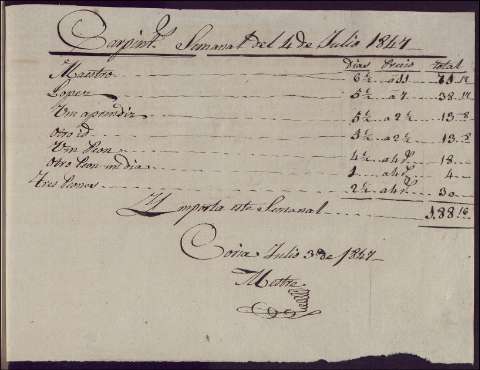 Carpint.ª Semanal del 4 de Julio 1847
Dias Precio Total
Maestro 6½ a 11 71 17
Lopez 5½ a 7 38 17
Un aprendiz 5½ a 2½ 13 8
Otro id 5½ a 2½ 13 8
Un Peon 4½ a 4 18
Otro Peon un dia 1 a 4 4
Tres Peones 2½ a 4 30
Importa este Semanal 188 16
Julio 3 de 1847
Mestre